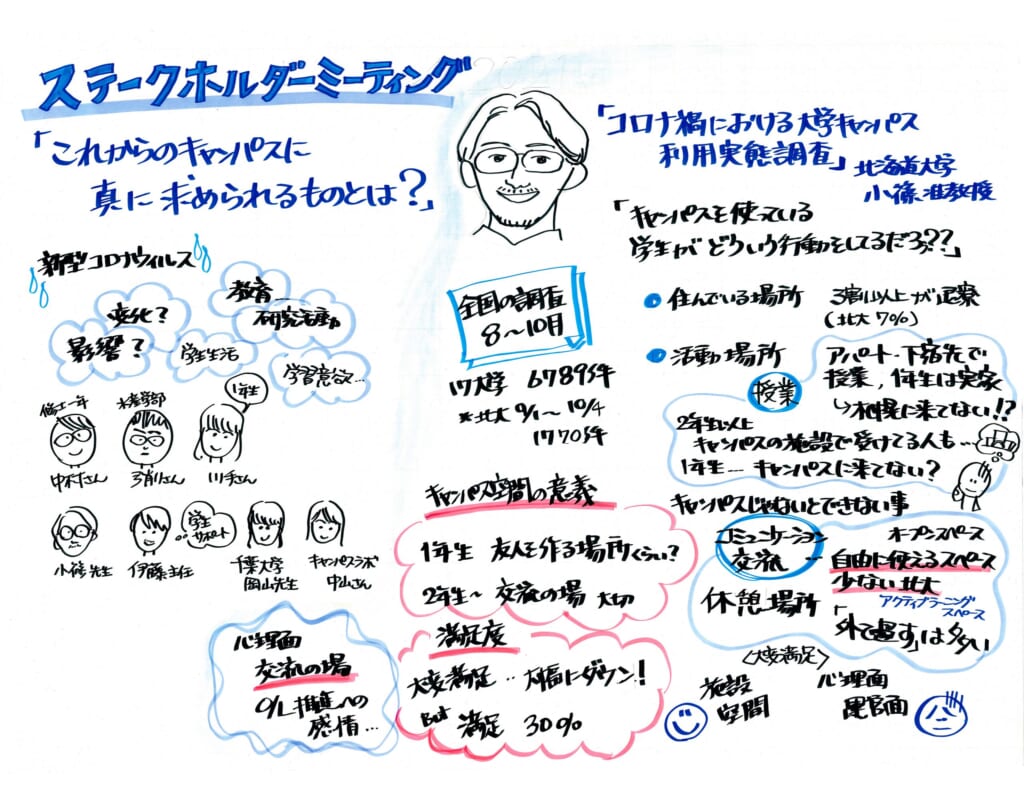 ステークホルダーミーティング
「これからのキャンパスに
真に求められるものとは?」
新型コロナウィルス
変化?
影響?
教育
研究活動
学生生活
学習意欲…
1年生
修士一年
水産学部
中村さん
川手さん
小篠先生
伊藤主任
学生
サポート
千葉大学
岡山先生
キャンパスラボ
中山さん
心理面
交流の場
O/L推進への
感情…
全国の調査
8〜10月
17大学 6789件
*北大 9/1〜10/4
1770件
キャンパス空間の意義
1年生 友人を作る場所くらい?
2年生〜 交流の場 大切
満足度
大変満足‥大幅にダウン!
But 満足 30%
「コロナ禍における大学キャンパス
利用実態調査」
北海道大学
小篠准教授
「キャンパスを使っている
学生がどういう行動をしてるだろ??」
住んでいる場所 3割以上が
(北大7%)
活動場所
授業
アパート・下宿先で
授業,1年生は実家
↳札幌に来てない!?
2年生以上
キャンパスの施設で受けてる人も…
1年生…キャンパスに来てない?
キャンパスじゃないとできない事
コミュニケーション
交流
休憩場所
オープンスペース
自由に使えるスペース
少ない北大
アクティブラーニング
スペース
「外で過す」は多い
〈大変満足〉
施設
空間
心理面